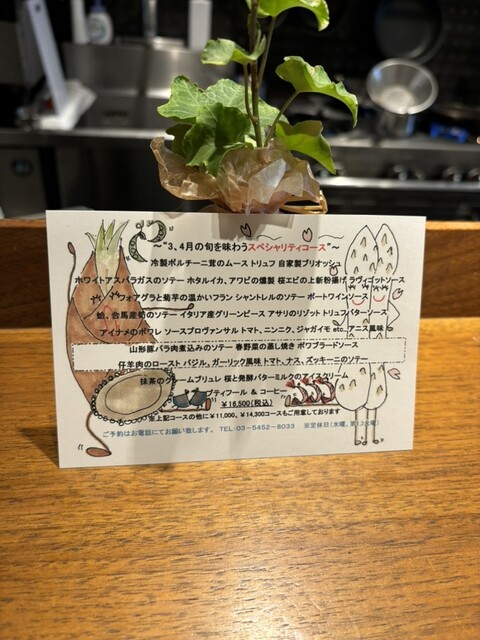 ～"3、4月の旬を味わうスペシャリティコース"～
冷製ポルチーニ茸のムース トリュフ 自家製ブリオッシュ
ホワイトアスパラガスのソテー ホタルイカ、アワビの燻製 桜エビの上新粉揚げ ラヴィゴットソース
フォアグラと菊芋の温かいフラン シャントレルのソテー ポートワインソース
蛤、合馬産筍のソテー イタリア産グリーンピース アサリのリゾット トリュフバターソース
アイナメのポワレ ソースプロヴァンサル トマト、ニンニク、ジャガイモ etc. アニス風味
山形豚バラ肉煮込みのソテー 春野菜の蒸し焼き ポワブラードソース
仔羊肉のロースト バジル、ガーリック風味 トマト、ナス、ズッキーニのソテー
抹茶のクレームブリュレ 桜と発酵バターミルクのアイスクリーム
プティフール & コーヒー
¥16,500(税込)
※上記コースの他に¥11,000、¥14,300コースもご用意しております
ご予約はお電話にてお願い致します。 TEL:03-5452-8033 ※定休日(水曜、第1,3火曜)